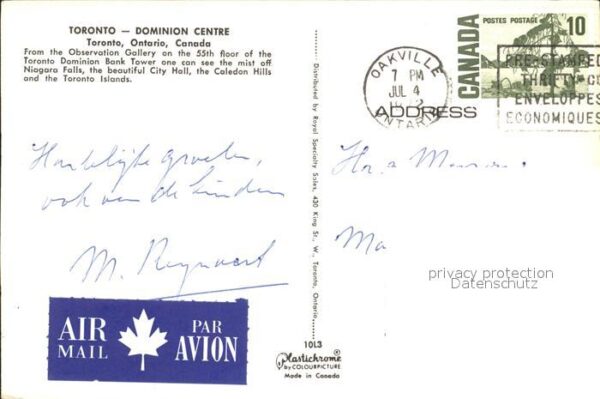 TORONTO — DOMINION CENTRE
Toronto, Ontario, Canada
From the Observation Gallery on the 55th floor of the
Toronto Dominion Bank Tower one can see the mist off
Niagara Falls, the beautiful City Hall, the Caledon Hills
and the Toronto Islands.
Distributed by Royal Specialty Sales, 430 King St., W., Toronto, Ontario
POSTES POSTAGE 10
CANADA
OAKVILLE
7 PM
JUL 4
ONTARIO
PRE-STAMPED
THRIFTY-CO
ENVELOPPES
ECONOMIQUES
ADDRESS
Hartelijke groeten,
ook van de kinderen
M.
Ma
privacy protection
Datenschutz
AIR MAIL
PAR AVION
10L3
Plastichrome®
by COLOURPICTURE
Made in Canada